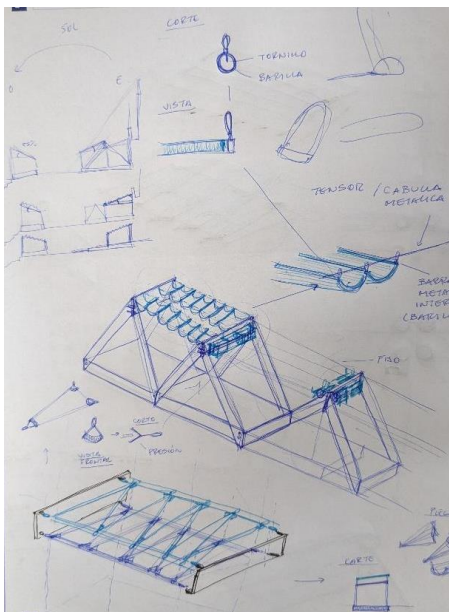 SOL
CORTE
TORNILLO
BARILLA
O
E
VISTA
TENSOR / CABULLA
METALICA
BARR
META
INTER
(BARIL
FIJO
CORTE
PRESIÓN
VISTA
FRONTAL
CORTE